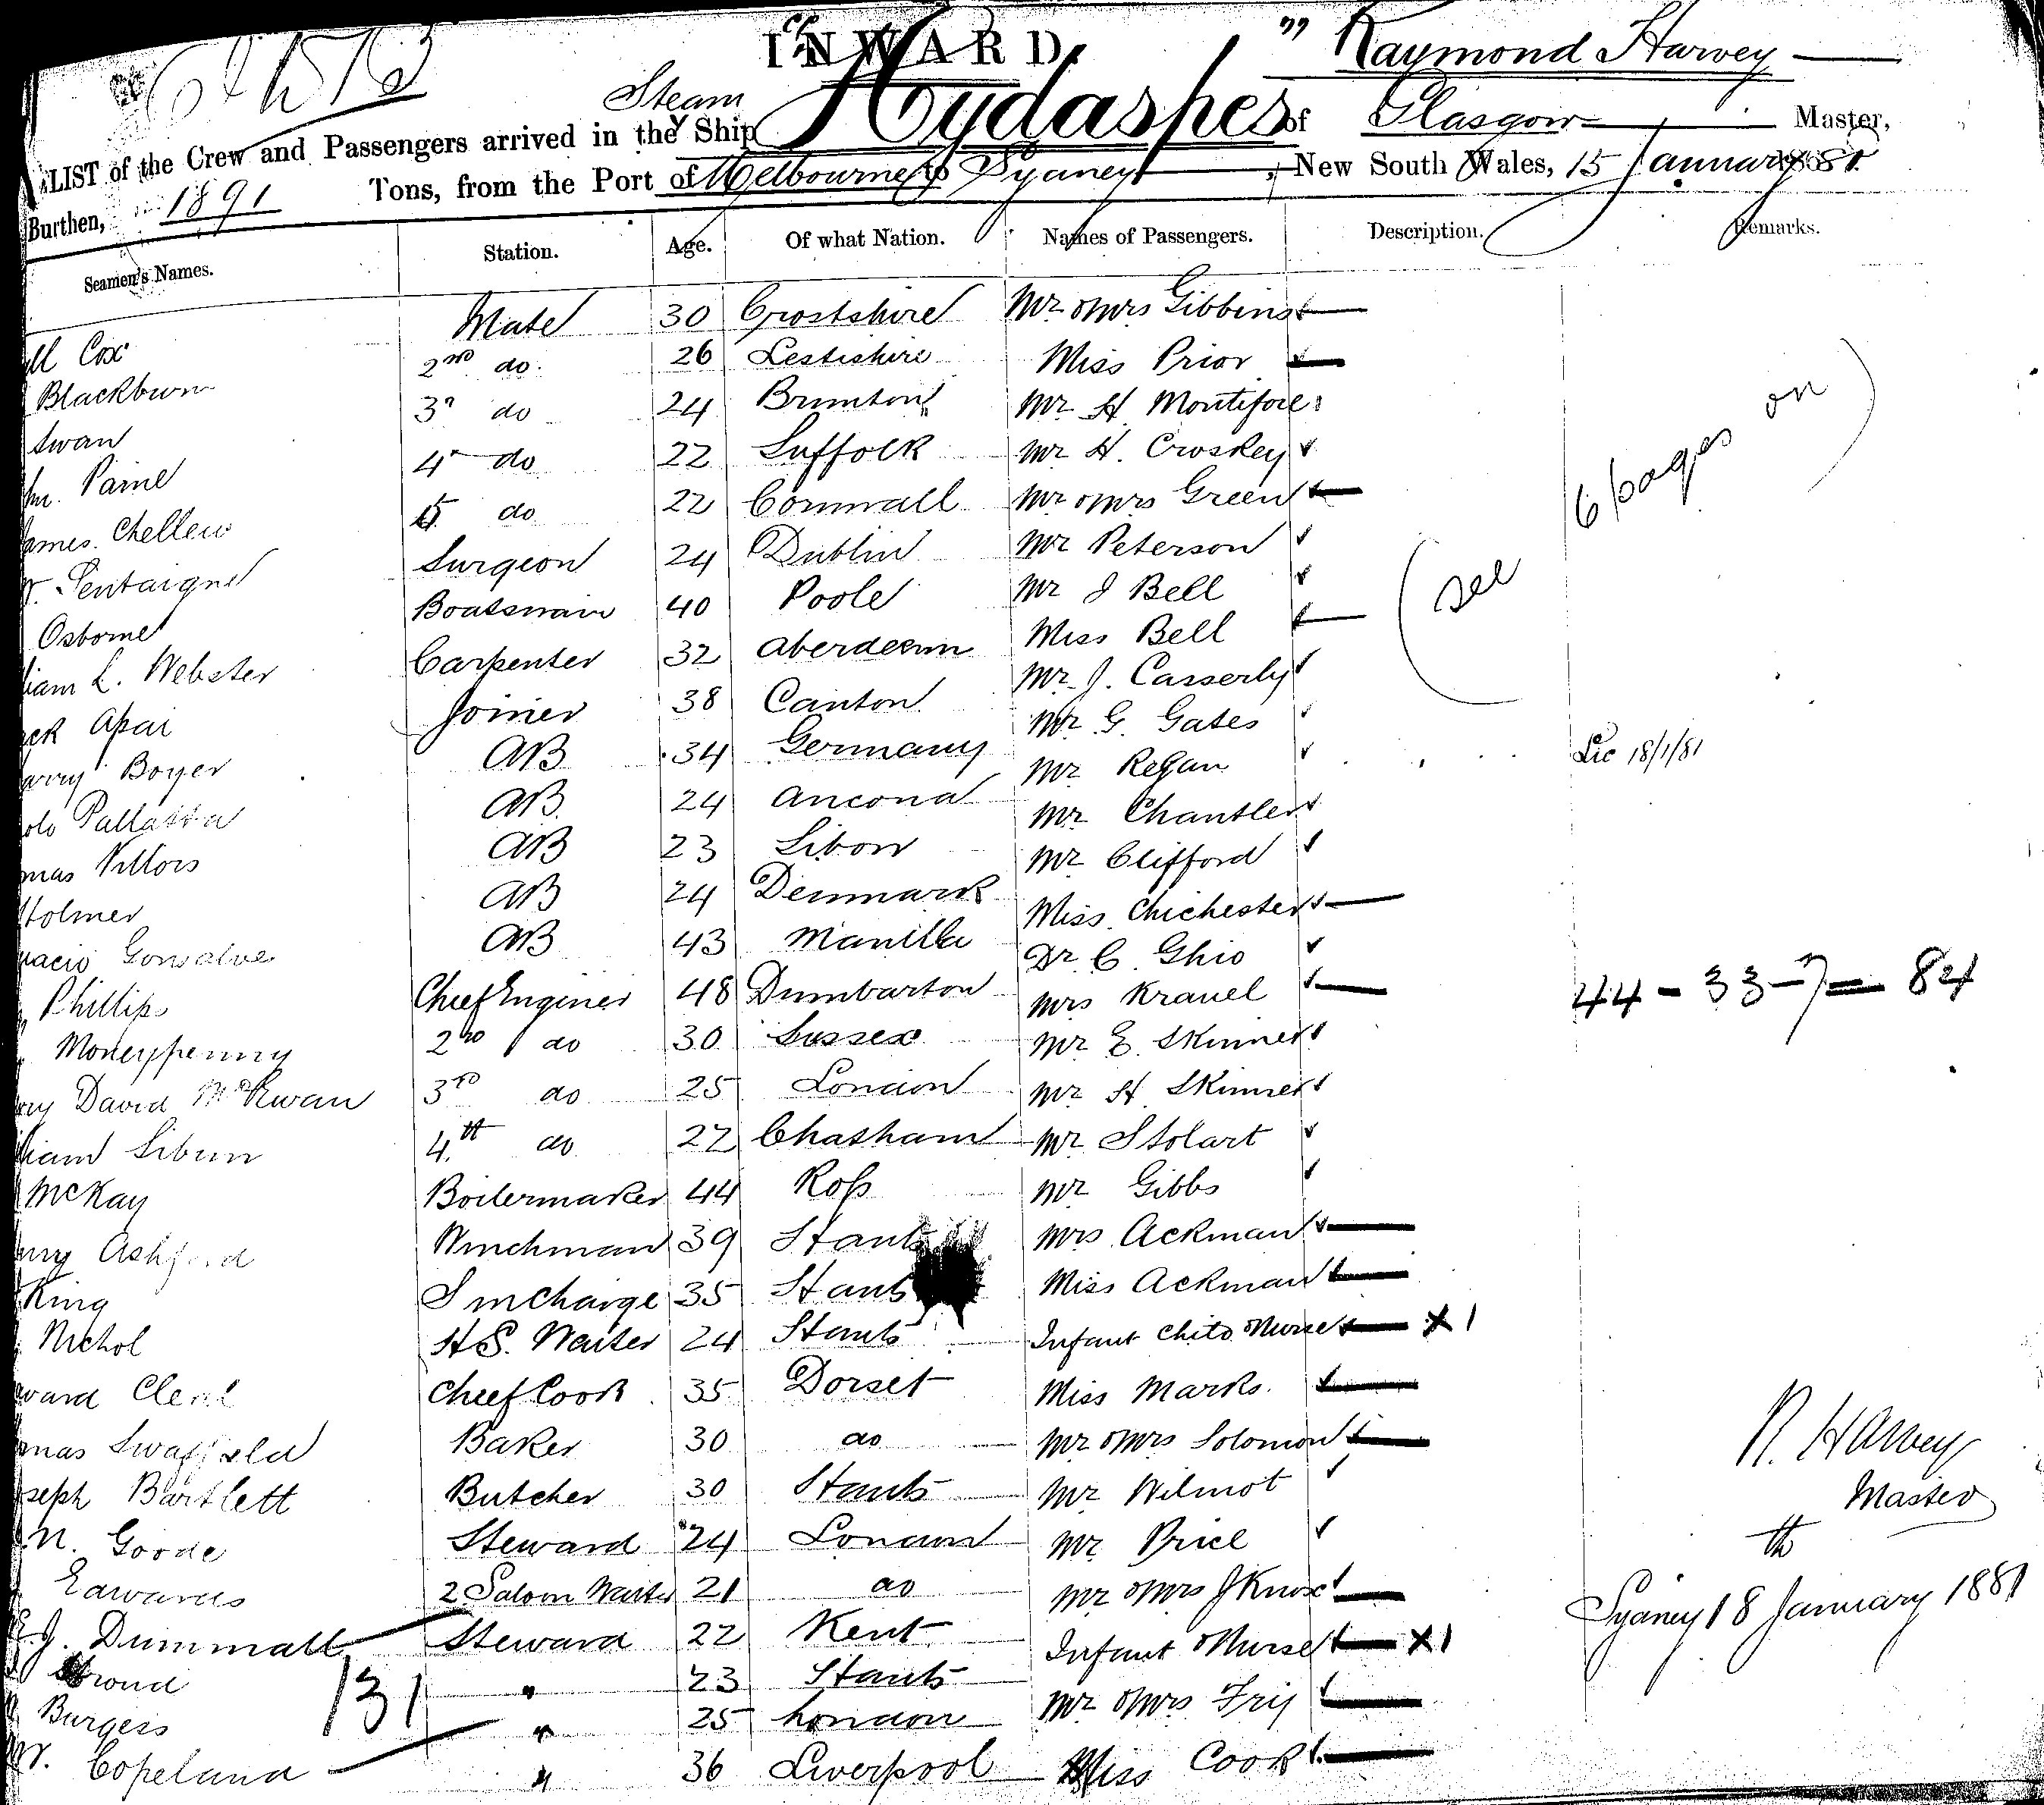 INWARD
"Hydaspes" Raymond Harvey
LIST of the Crew and Passengers arrived in the Steam Ship Hydaspes of Glasgow Master,
Burthen, 1891 Tons, from the Port of Melbourne to Sydney, New South Wales, 15 January 1881
Seamen's Names. Station. Age. Of what Nation. Names of Passengers. Description. Remarks.
ll Cox Mate 30 Mr & Mrs Gibbins
Blackburn 2nd do. 26 Miss Prior
Swan 3rd do 24 Mr H Montifore
Paine 4th do 22 Suffolk Mr H. Croskey
ames Chellew 5 do 22 Cornwall Mr & Mrs Green
Pentaigne Surgeon 24 Dublin Mr Peterson
Osborne Boatswain 40 Poole Mr J Bell
liam L. Webster Carpenter 32 Aberdeen Miss Bell
(see 16 pages on)
ack Apai Joiner 38 Canton Mr J. Casserly
arry Boyer AB 34 Germany Mr G. Gates
olo Pallatta AB 24 Ancona Mr Regan Lic 18/1/81
mas AB 23 Libon Mr Chantler
Holmer AB 24 Denmark Mr Clifford
nacio Gonsalve AB 43 Manilla Miss Chichester
Phillips Chief Enginer 48 Dumbarton Dr C. Ghio
Moneypenny 2nd do 30 Sussex Mrs Krauel
44 - 33 - 7 = 84
ry David McKwan 3rd do 25 London Mr E. Skinner
liam Sibun 4th do 22 Chatham Mr H Skinner
McKay Boilermaker 44 Ross Mr Stolart
nry Ashford Winchman 39 Hants Mr Gibbs
King S in Charge 35 Hants Mrs Ackman
Nichol H S. Waiter 24 Hants Miss Ackman
ward Chief Cook 35 Dorset Infant Child & Nurse X 1
mas Swaffield Baker 30 do Miss Marks
seph Bartlett Butcher 30 Hants Mr & Mrs Solomon
N. Goode Steward 24 London Mr Wilmot
Edwards 2 Saloon Waiter 21 do Mr Price
J. Dummall Steward 22 Kent Mr & Mrs J Knox
Stroud " 23 Hants Infant & Nurse X 1
Burgess " 25 London Mr & Mrs Frij
W. Copeland " 36 Liverpool Miss Cook
131
R. Harvey
Master
Sydney 18th January 1881